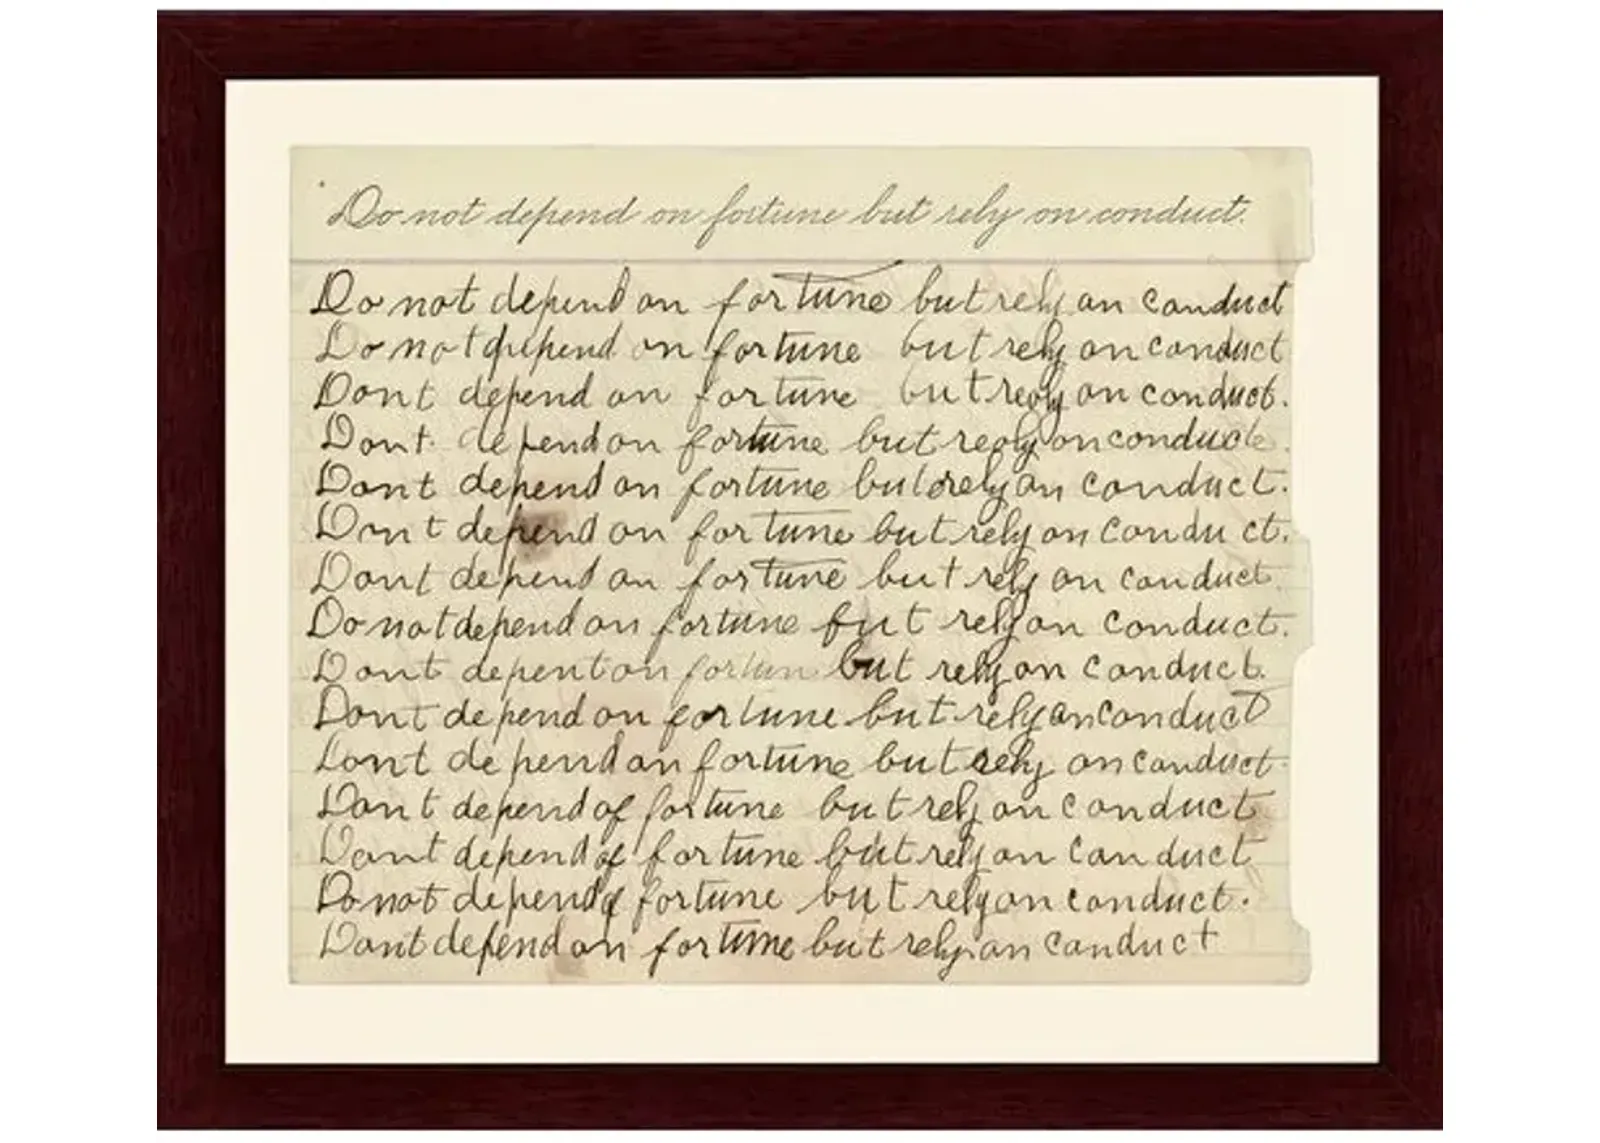 Do not depend on fortune but rely on conduct.
Do not depend on fortune but rely on conduct
Do not depend on fortune but rely on conduct
Dont depend on fortune but reoly on conduct.
Dont. depend on fortune but reoly on conducte.
Dont depend on fortune but rely on conduct.
Dont depend on fortune but rely on conduct.
Dont depend on fortune but rely on conduct.
Do not depend on fortune but rely on conduct.
Dont depent on fortun but rely on conduct.
Dont depend on fortune but rely on conduct
Dont depend on fortune but rely on conduct.
Dont depend of fortune but rely on conduct
Dont depend of fortune but rely on conduct
Do not depend of fortune but rely on conduct.
Dont depend on fortune but rely on conduct